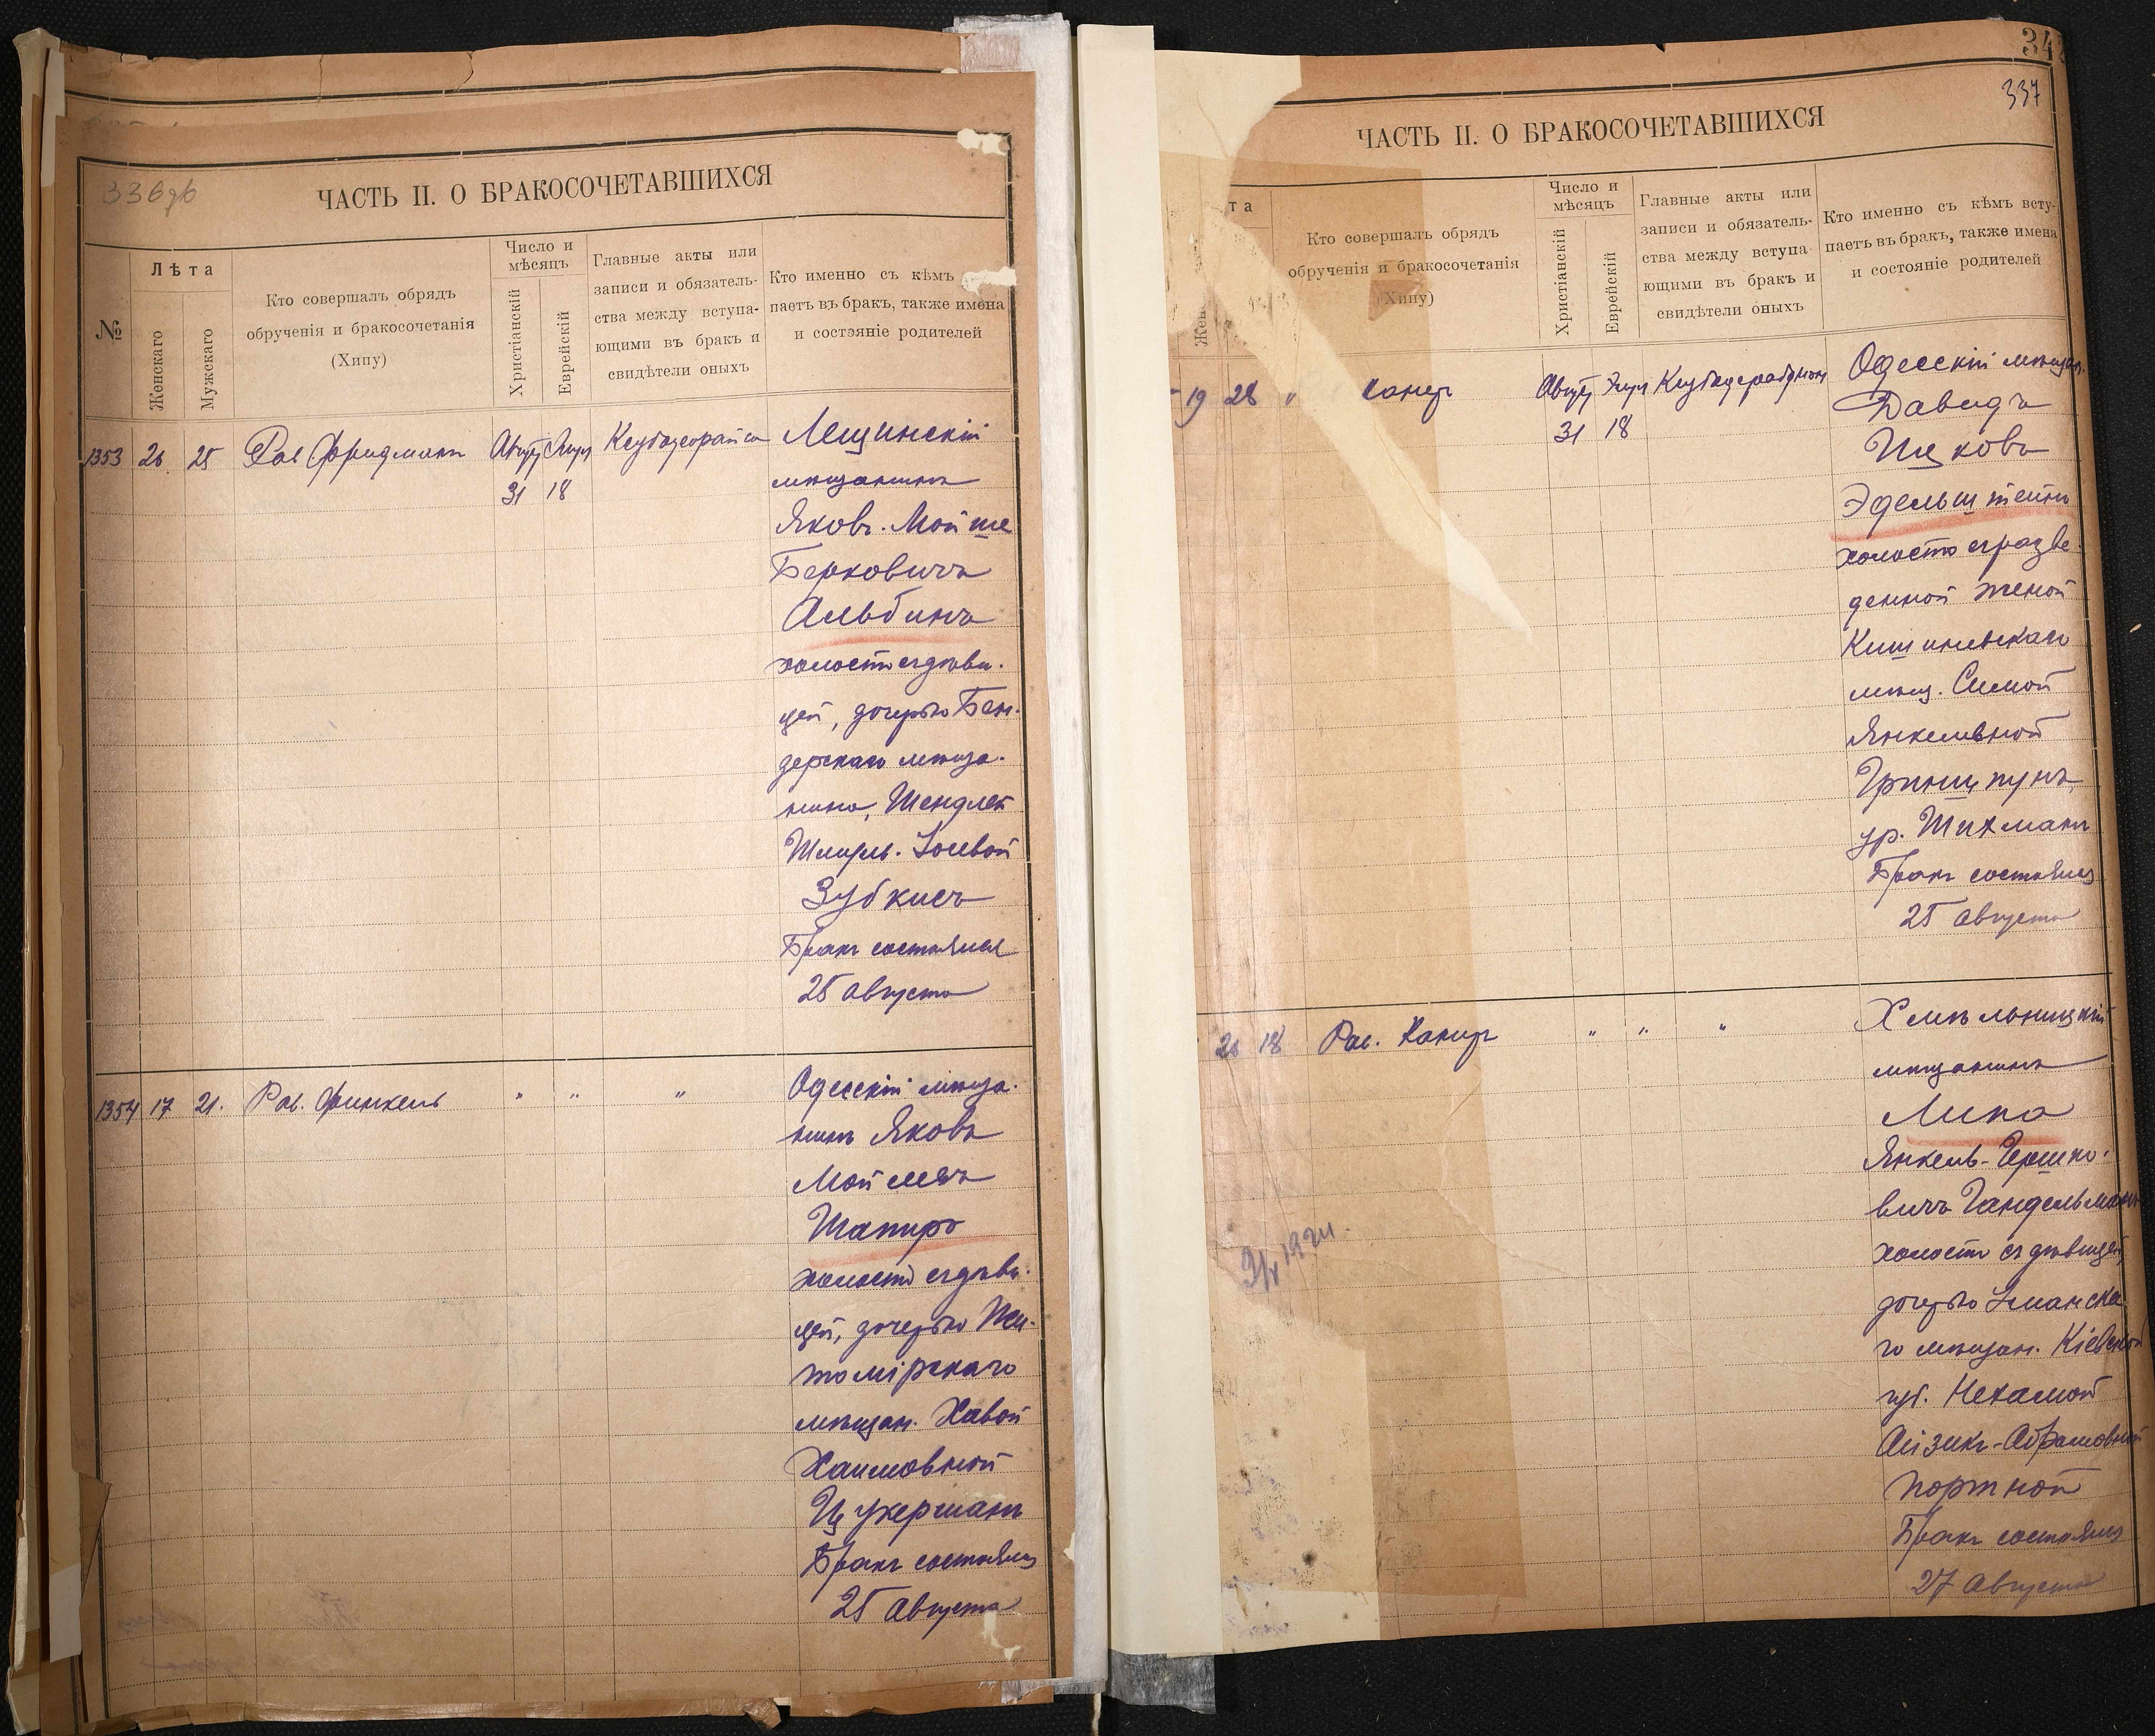 336 об
ЧАСТЬ II. О БРАКОСОЧЕТАВШИХСЯ
№
Лѣта
Женскаго
Мужскаго
Кто совершалъ обрядъ
обрученія и бракосочетанія
(Хипу)
Число и
мѣсяцъ
Христіанскій
Еврейскій
Главные акты или
записи и обязатель-
ства между вступа-
ющими въ бракъ и
свидѣтели оныхъ
Кто именно съ кѣмъ
паетъ въ бракъ, также имена
и состояніе родителей
1353 26 25 Рав Фридманъ
31 18
мѣщанинъ
Яковъ-Мойше
Берковичъ
Альбинъ
холостъ съ дѣви-
цей, дочерью Бен-
дерскаго мѣща-
нина, Шендлей
Шмуль-
Зубкисъ
Бракъ состоялся
25 августа
1354 17 21. Рав. Финкель " " "
Одесскій мѣща-
нинъ Яковъ
Шапиро
холостъ съ дѣви-
цей, дочерью Жи-
томірскаго
мѣщан. Хавой
Хаимовной
Цукерманъ
Бракъ состоялся
25 августа
34
337
ЧАСТЬ II. О БРАКОСОЧЕТАВШИХСЯ
та
Жен
Кто совершалъ обрядъ
обрученія и бракосочетанія
(Хипу)
Число и
мѣсяцъ
Христіанскій
Еврейскій
Главные акты или
записи и обязатель-
ства между вступа-
ющими въ бракъ и
свидѣтели оныхъ
Кто именно съ кѣмъ всту-
паетъ въ бракъ, также имена
и состояніе родителей
19 28 "
31 18
Одесскій мѣщан.
Давидъ
Ицковъ
Эдельштейнъ
холостъ съ разве-
денной женой
Кишиневскаго
мѣщ. Симой
Янкелевной
Гринщпунъ,
ур. Шихманъ
Бракъ состоялся
25 августа
26 18 Рав. Канеръ " " "
Хмѣльницкій
мѣщанинъ
Липа
Янкель-Гершко-
вичъ Гандельманъ
холостъ съ дѣвицей,
дочерью Уманска-
го мѣщан. Кіевской
губ. Нехамой
Айзикъ-Абрамовной
Портной
Бракъ состоялся
27 августа